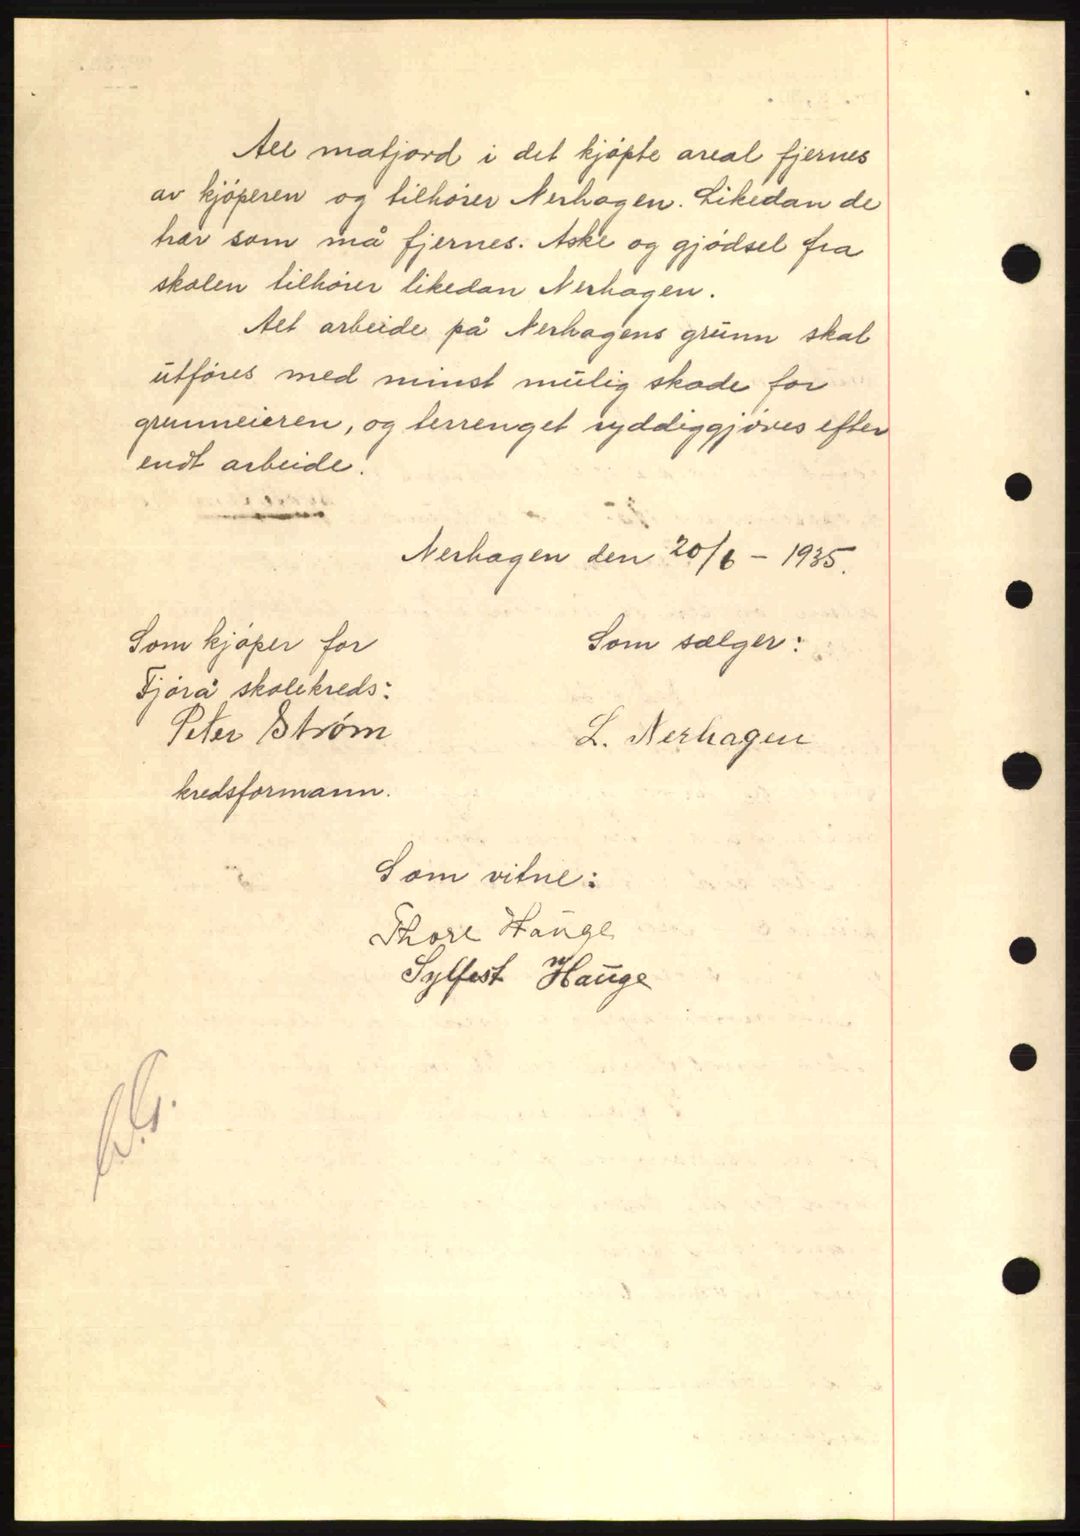 All matjord i det kjöpte areal fjernes
av kjöperen og tilhörer Nerhagen. Likedan de
trær som må fjernes. Aske og gjödsel fra
skolen tilhörer likedan Nerhagen.
Alt arbeide på Nerhagens grunn skal
utföres med minst mulig skade for
grunneieren, og terrenget ryddiggjöres efter
endt arbeide.
Nerhagen den 20/6 - 1935.
Som kjöper for
Fjörå skolekreds:
Peter Strøm
kredsformann.
Som sælger:
L. Nerhagen
Som vitne:
Thore Hauge
Sylfest Hauge